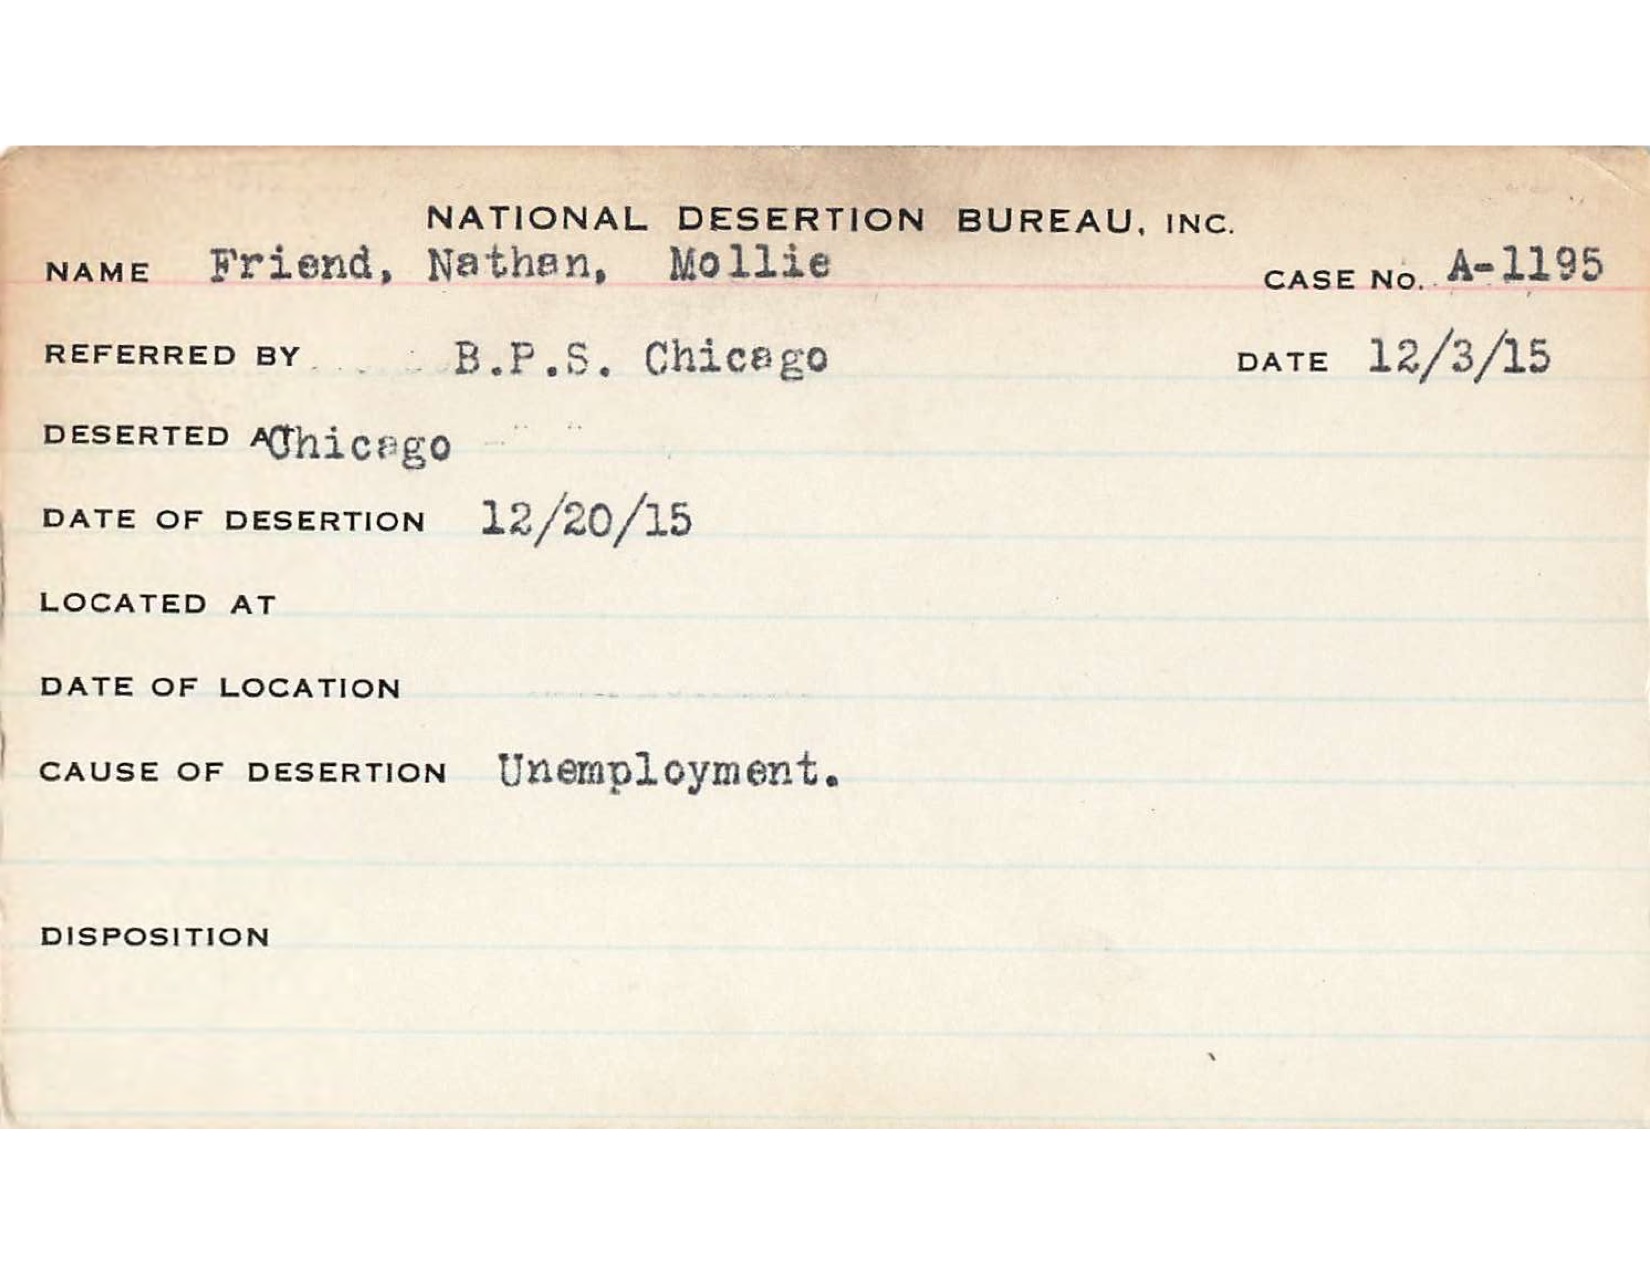 NATIONAL DESERTION BUREAU, INC.
NAME Friend, Nathan, Mollie CASE No. A-1195
REFERRED BY B.P.S. Chicago DATE 12/3/15
DESERTED AT Chicago
DATE OF DESERTION 12/20/15
LOCATED AT
DATE OF LOCATION
CAUSE OF DESERTION Unemployment.
DISPOSITION